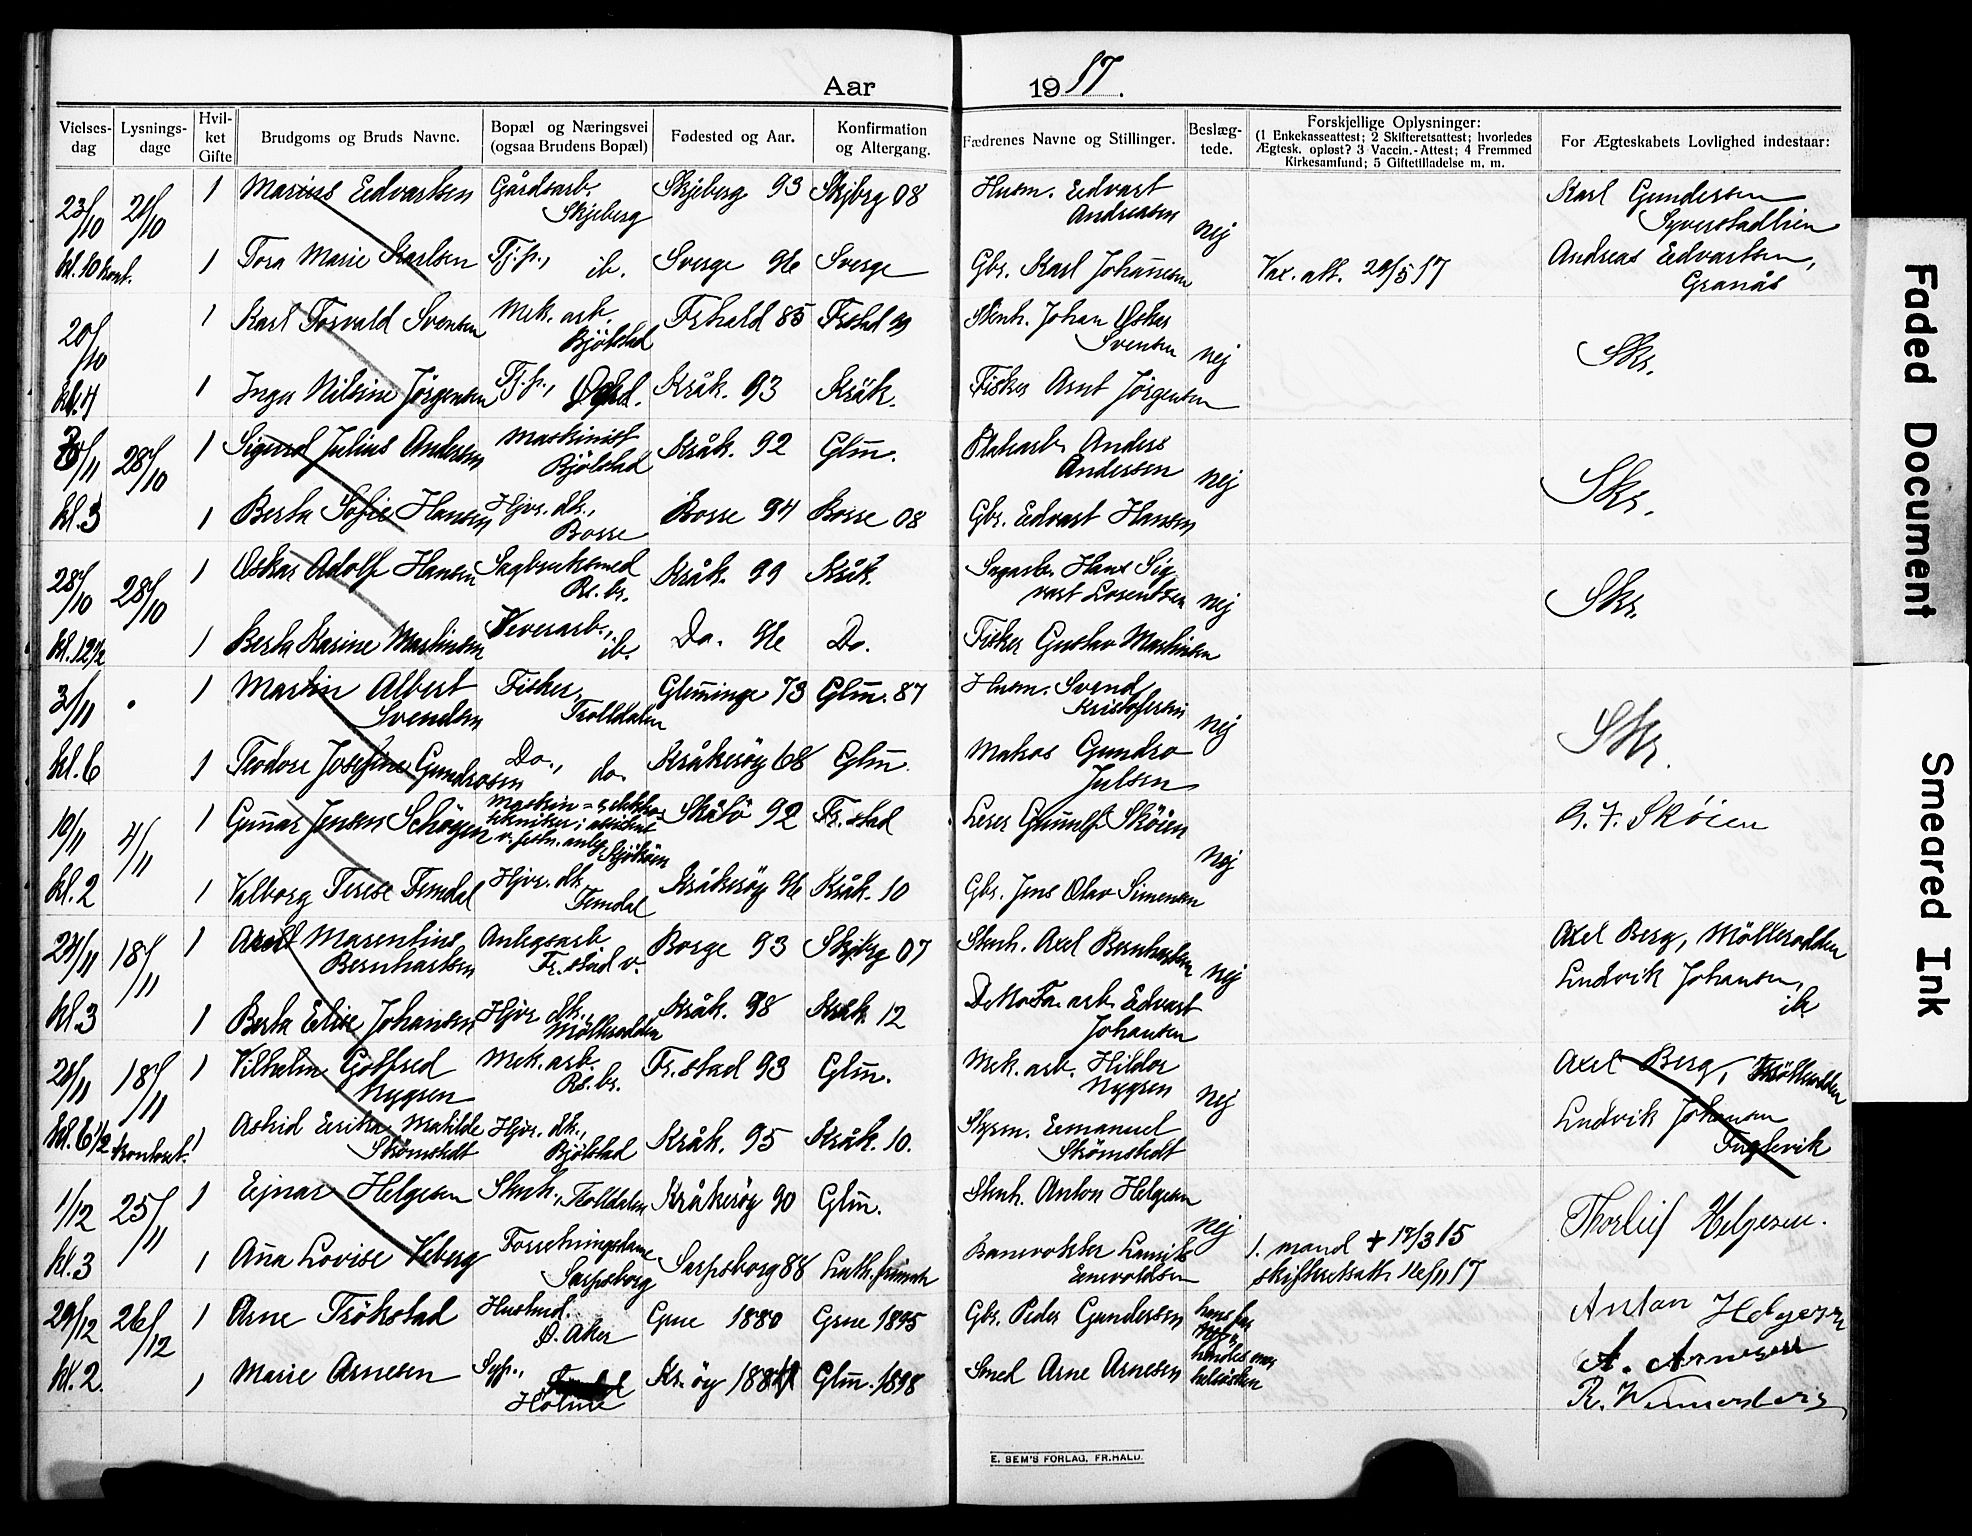 Aar 1917.
Vielses-dag | Lysnings-dage | Hvil-ket Gifte | Brudgoms og Bruds Navne. | Bopæl og Næringsvei (ogsaa Brudens Bopæl) | Fødested og Aar. | Konfirmation og Altergang. | Fædrenes Navne og Stillinger. | Beslæg-tede. | Forskjellige Oplysninger: (1 Enkekasseattest; 2 Skifteretsattest; hvorledes Ægtesk. opløst? 3 Vaccin.-Attest; 4 Fremmed Kirkesamfund; 5 Giftetilladelse m. m. | For Ægteskabets Lovlighed indestaar:
23/10 | 21/10 | 1 | Marius Edvartsen | Gårdsarb. Skjeberg | Skjeberg 93 | Skjbrg 08 | Husm. Edvart Andreasen | nej | Karl Gundersen Syverstadlien
kl. 10 kont. | 1 | Tora Marie Karlsen | Tj.p., ib. | Sverge 96 | Sverge | Gbr. Karl Johannesen | Vax. att. 29/5 17 | Andreas Edvartsen, Granås
20/10 | 1 | Karl Torvald Svensen | Mek. arb. Bjölstad | Frhald 85 | Frstad 99 | Stenh. Johan Oskar Svensen | nej | Skr.
kl. 4 | 1 | Inga Nilsine Jörgensen | Tj.p., | Kråk. 93 | Kråk. | Fisker Arnt Jörgensen
28/10 | 1 | Sigurd Julius Andersen | Maskinist Bjölstad | Kråk. 92 | Glm. | Anders Andersen | nej | Skr.
kl. 3 | 1 | Berta Sofie Hansen | Hjvr. dtr., Borge | Borge 94 | Borge 08 | Gbr. Edvart Hansen
28/10 | 28/10 | 1 | Oskar Adolf Hansen | Sagbruksmed Rs. br. | Kråk. 99 | Kråk. | Sagarb. Hans Sigvart Lorentzen | nej | Skr.
kl. 12 1/2 | 1 | Berta Karine Martinsen | Veverarb., ib. | Do. 96 | Do. | Fisker Gustav Martinsen
3/11 | 1 | Martin Albert Svendsen | Fisker, Trolldalen | Glemminge 73 | Glm. 87 | Husm. Svend Kristofersen | nej | Skr.
kl. 6 | 1 | Teodore Josefine Gundrosen | Do., do. | Kråkeröy 68 | Glm. | Matros Gundro Julsen
10/11 | 4/11 | 1 | Gunnar Jensen Schøyen | Maskin- & elektrotekniker; assistent v. festn. anleg | Skåtö 92 | Fr. stad | Lerer Gunnulf Sköien | nej | G. F. Sköien
kl. 2 | 1 | Valborg Terese Femdal | Hjvr. dtr. Femdal | Kråkeröy 96 | Kråk. 10 | Gbr. Jens Olav Simensen
24/11 | 18/11 | 1 | Marentius Bernhartsen | Anlegsarb. Fr. stad v. | Borge 93 | Skjbrg 07 | Stenh. Axel Bernhartsen | nej | Axel Berg, Mölterodden
kl. 3 | 1 | Berta Elise Johansen | Hjvr. dtr., Mölterodden | Kråk. 98 | Kråk. 12 | DeNoFa. arb. Edvart Johansen | Ludvik Johansen, ib.
28/11 | 18/11 | 1 | Vilhelm Gotfred Nygren | Mek. arb. Rs. br. | Fr. stad 93 | Glm. | Mek. arb. Hildor Nygren | nej | Axel Berg, Mölterodden
kl. 6 1/2 kontoret. | 1 | Astrid Erika Matilde Strömstedt | Hjvr. dtr., Bjölstad | Kråk. 95 | Kråk. 10. | Styrm. Emanuel Strömstedt | Ludvik Johansen Fuglevik
1/12 | 25/11 | 1 | Ejnar Helgesen | Stenh., Trolldalen | Kråkeröy 90 | Glm. | Stenh. Anton Helgesen | nej | Thorleif Helgesen.
kl. 3 | 1 | Anna Lovise Veberg | Forretningsdame Sarpsborg | Sarpsborg 88 | Luth. frimenh | Banevokter Lauritz Enevoldsen | 1. mand + 17/3 15 skifteretsatt. 16/11 17
29/12 | 26/12 | 1 | Arne Trökstad | Hustmd. Ö. Aker | Grue 1880 | Grue 1895 | Gbr. Peder Gundersen | hans far og hendes mor helsösken | Anton Helgesen
kl. 2 | 1 | Marie Arnesen | Syp., Holme | Kr. öy 1884 | Glm. 1898 | Smed Arne Arnesen | A. Arnesen
R. Wennersberg
E. SEM'S FORLAG, FR.HALD.
Faded Document
Smeared Ink